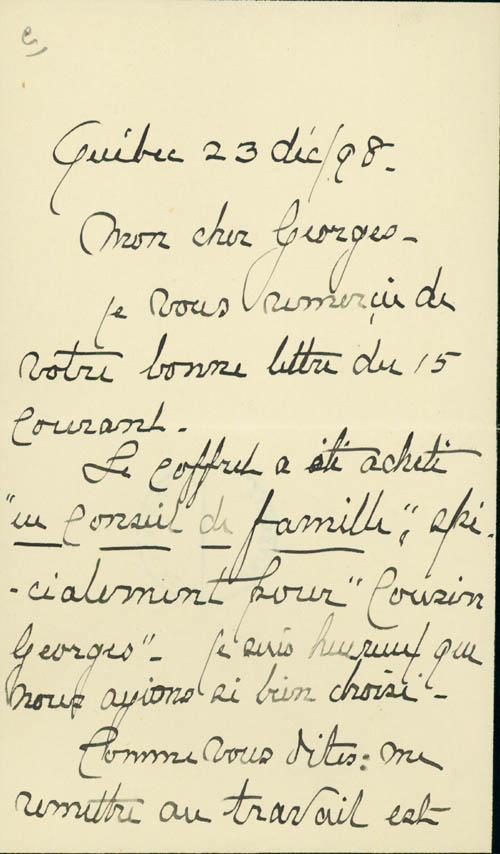 Québec 23 déc/98-
Mon cher Georges-
je vous remerçie de
votre bonne lettre du 15
Courant-
Le Coffret a été acheté
"en Conseil de famille", spé-
-cialement pour "Cousin
Georges"- je suis heureux que
nous ayions si bien choisi-
Comme vous dites: me
remettre au travail est